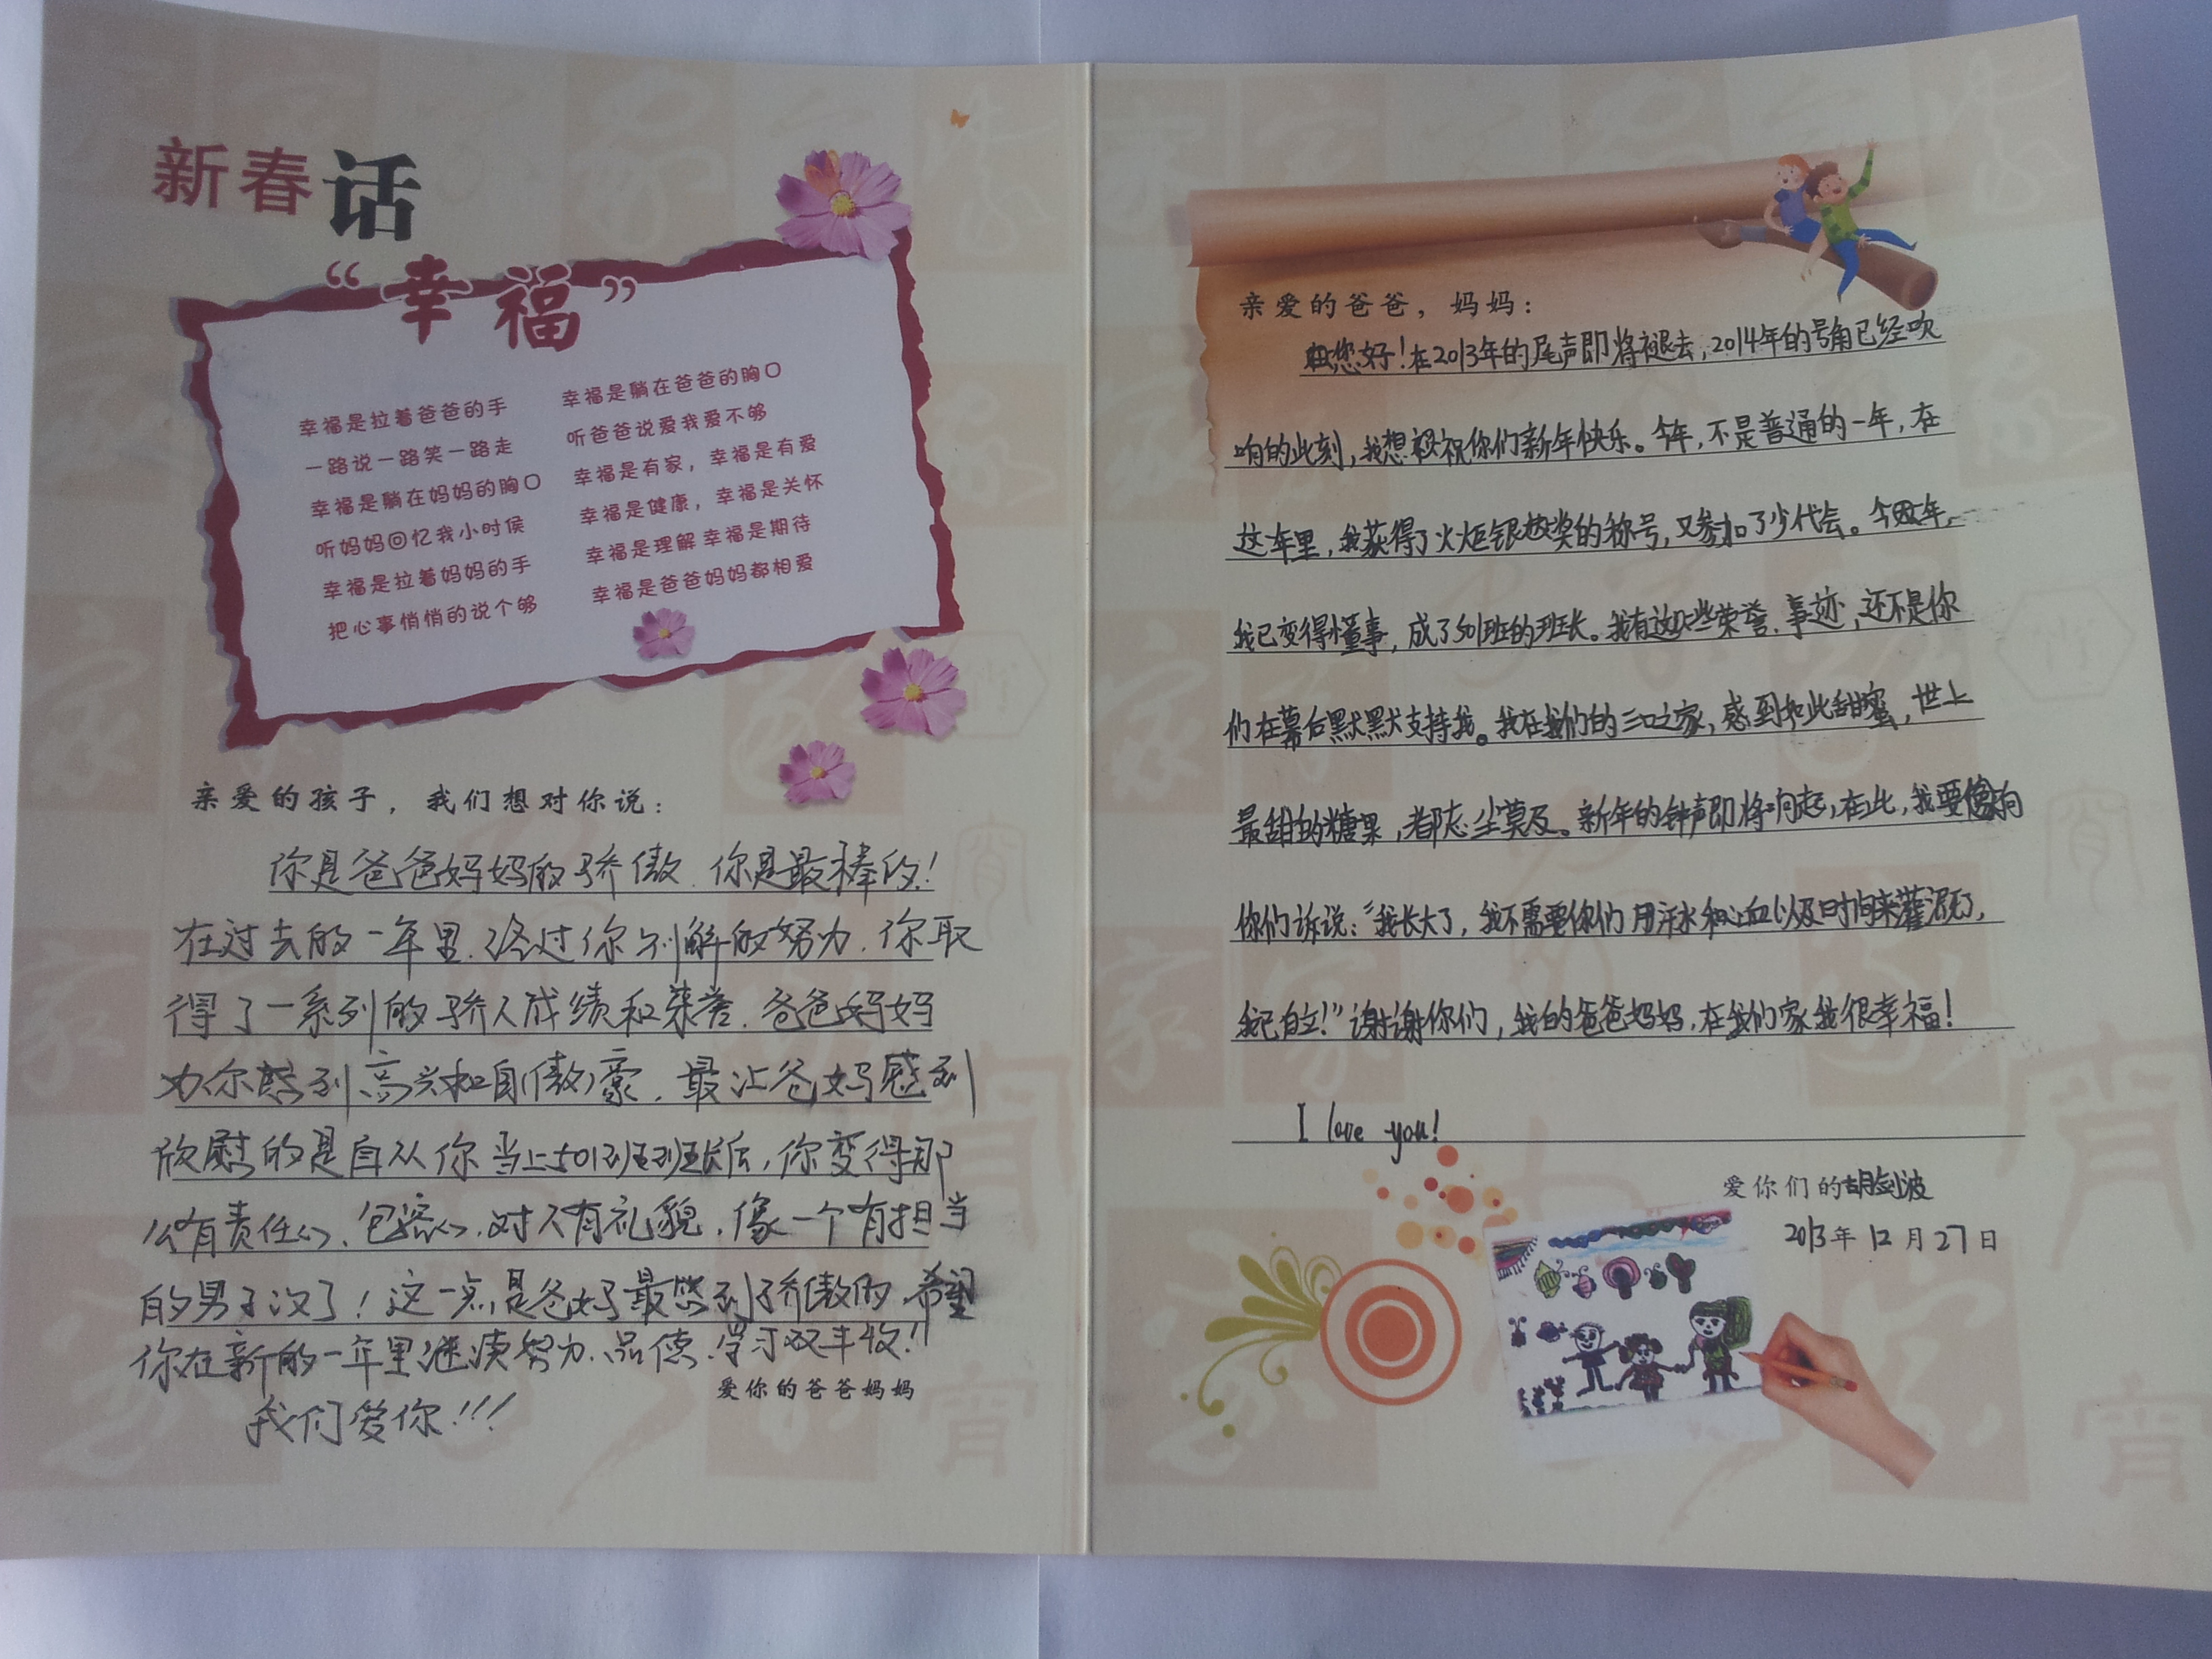 新春话
“幸福”
幸福是拉着爸爸的手
一路说一路笑一路走
幸福是躺在妈妈的胸口
听妈妈回忆我小时侯
幸福是拉着妈妈的手
把心事悄悄的说个够
幸福是躺在爸爸的胸口
听爸爸说爱我爱不够
幸福是有家，幸福是有爱
幸福是健康，幸福是关怀
幸福是理解 幸福是期待
幸福是爸爸妈妈都相爱
亲爱的孩子，我们想对你说：
你是爸爸妈妈的骄傲．你是最棒的！
在过去的一年里．经过你不懈的努力．你取
得了一系列的骄人成绩和荣誉．爸爸妈妈
为你感到高兴和自(傲)豪．最让爸妈感到
欣慰的是自从你当上501班班长后，你变得那
么有责任心、包容心．对人有礼貌．像一个有担当
的男子汉了！这一点是爸妈最感到骄傲的．希望
你在新的一年里继续努力．品德．学习双丰收！！
爱你的爸爸妈妈
我们爱你！！！
亲爱的爸爸，妈妈：
您好！在2013年的尾声即将褪去，2014年的号角已经吹
响的此刻，我想祝你们新年快乐。今年，不是普通的一年，在
这年里，我获得了火炬银奖的称号，又参加了少代会。今年，
我已变得懂事，成了501班的班长。我有这些荣誉、事迹，还不是你
们在幕后默默支持我。我在我们的三口之家，感到如此甜蜜，世上
最甜的糖果，都忘尘莫及。新年的钟声即将响起，在此，我要向
你们诉说：“我长大了，我不需要你们用汗水和心血以及时间来灌溉了，
我已自立！”谢谢你们，我的爸爸妈妈．在我们家我很幸福！
I love you!
爱你们的胡剑波
2013年12月27日